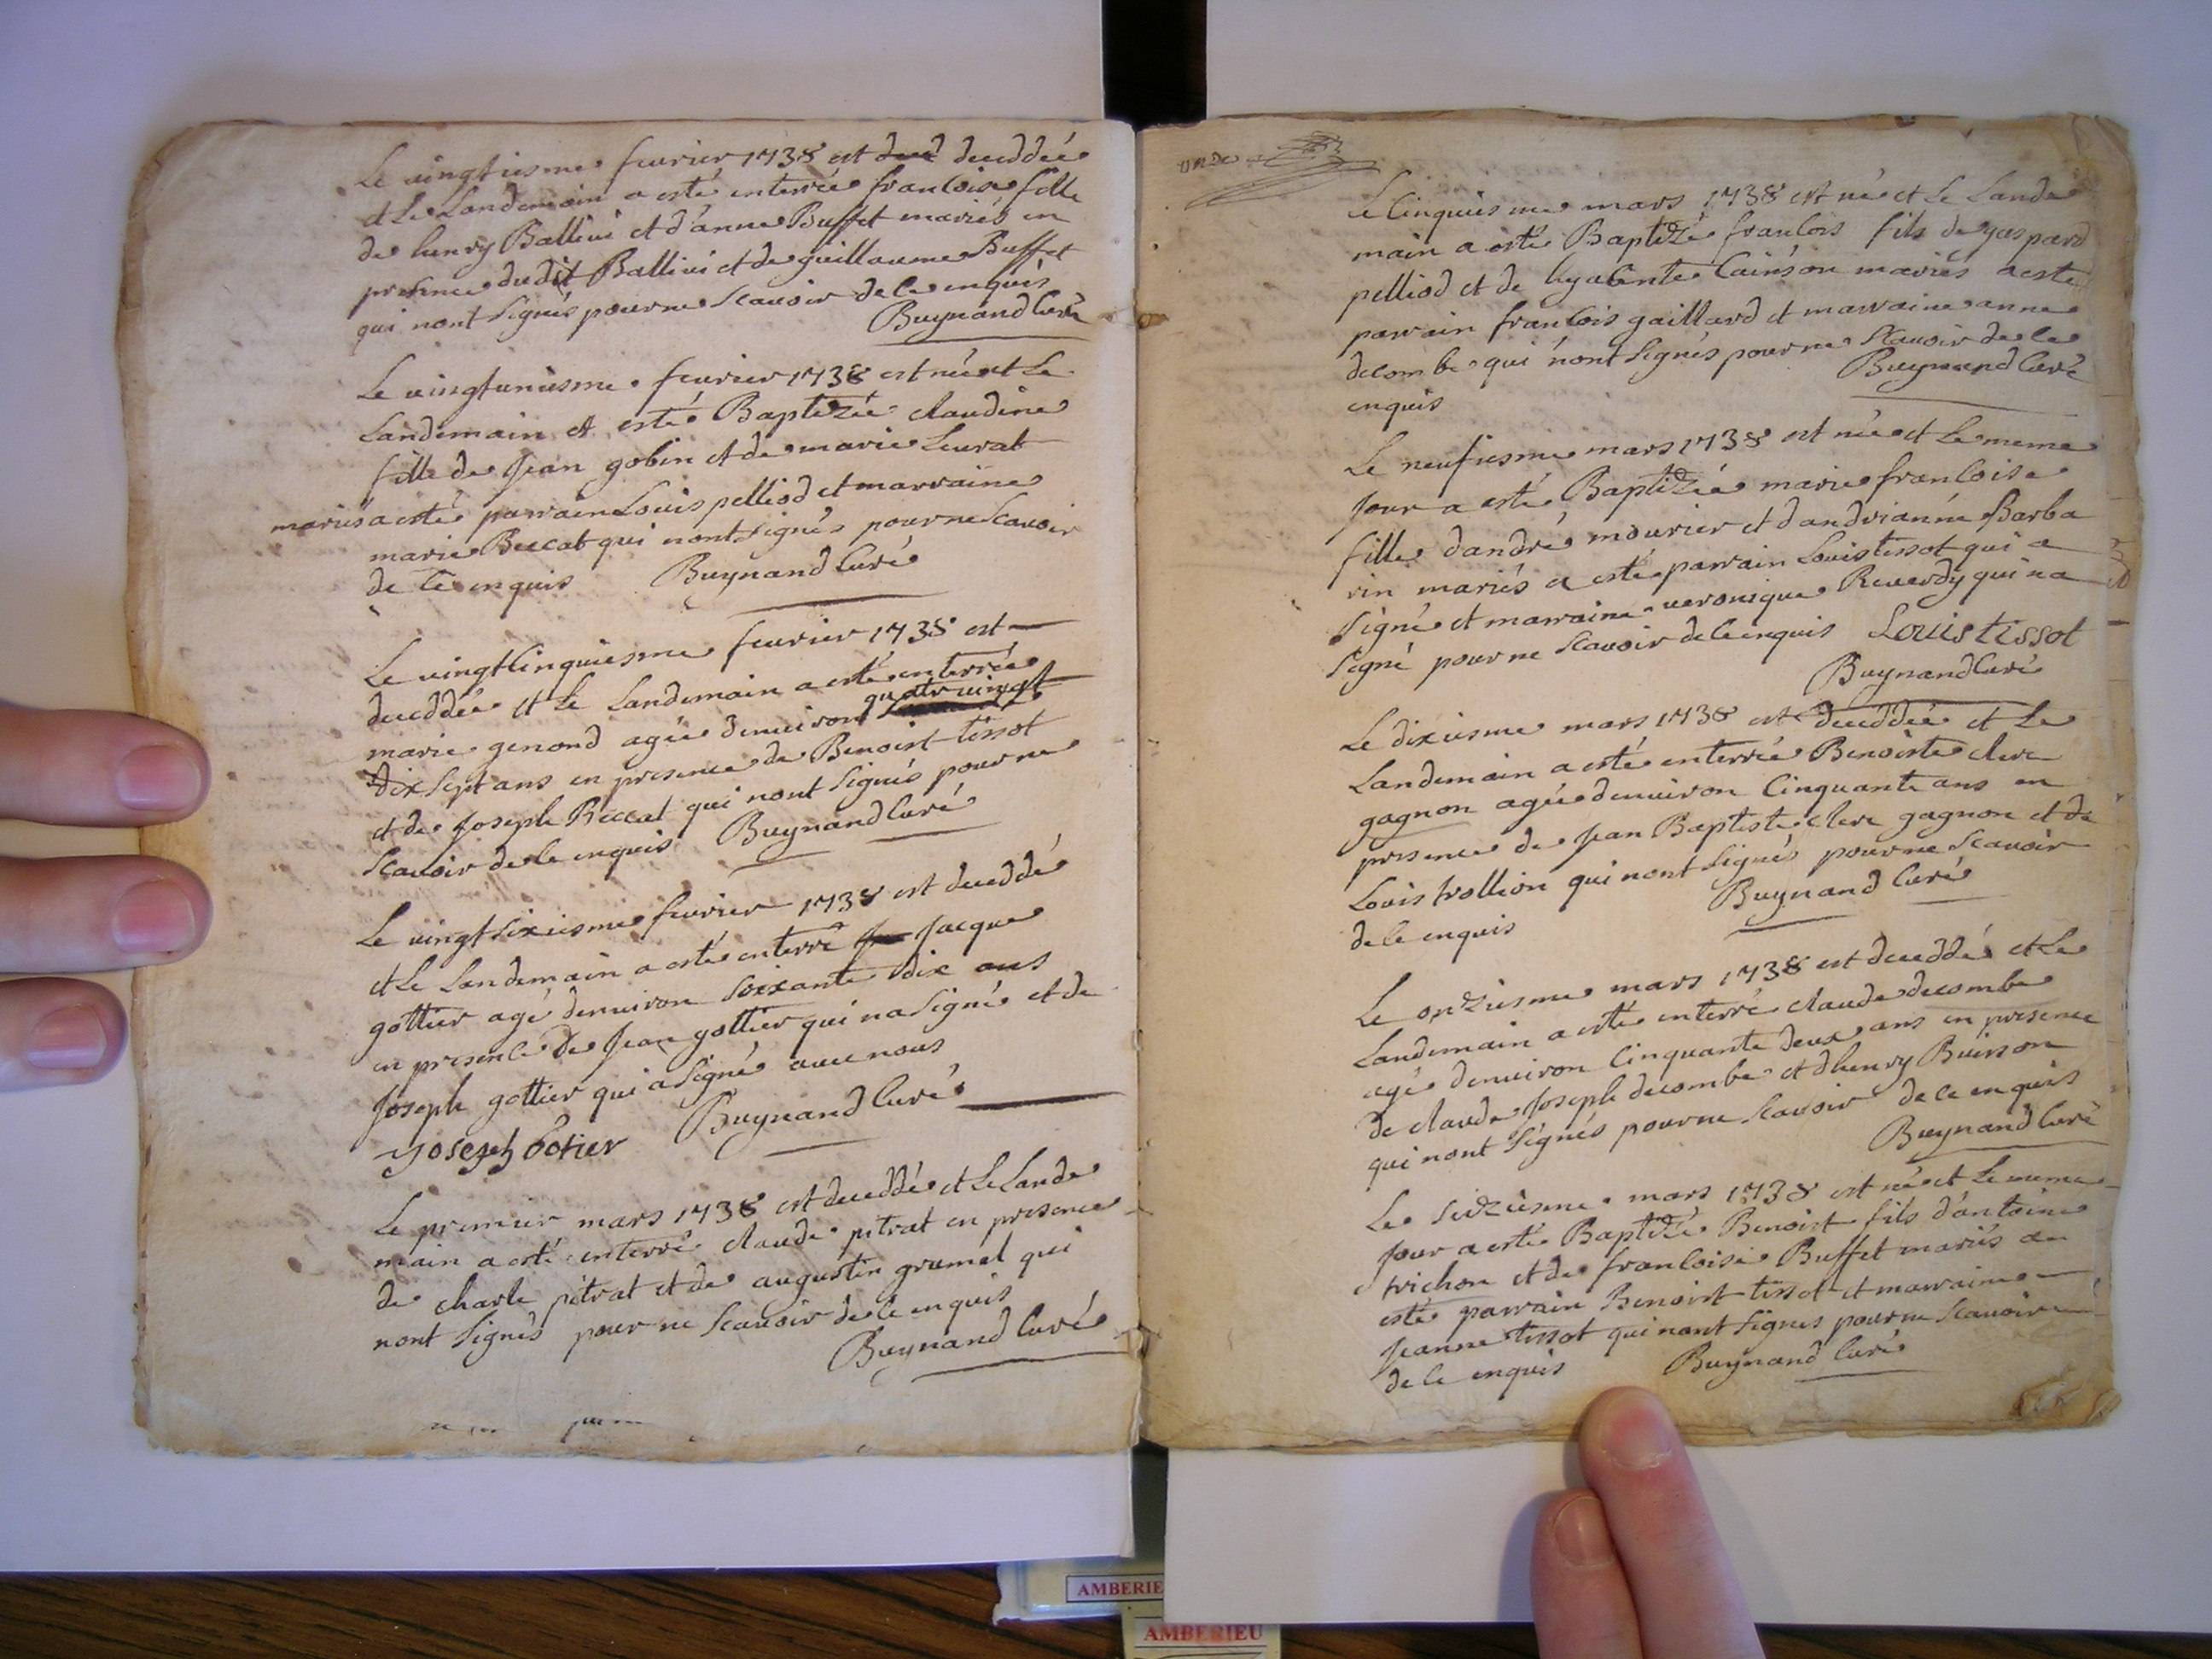 Le vingtiesme feurier 1738 est deceddée
et Le Landemain a esté enterrée francoise fille
de henry Ballivi et d'anne Buffet mariés en
presence dudit Ballivi et de guillaume Buffet
qui nont Signés pour ne Scavoir de ce enquis
Buynand Curé
Le vingtuniesme feurier 1738 est née et Le
Landemain a esté Baptizée claudine
fille de Jean gobin et de marie Leurat
mariés a esté parrain Louis pelliod et marraine
marie Beccat qui nont Signés pour ne Scavoir
de ce enquis Buynand Curé
Le vingtcinquiesme feurier 1738 est
deceddée et Le Landemain a esté enterrée
marie genond agée denuiron quatruingt
dix Sept ans en presence de Benoist tissot
et de Joseph Beccat qui nont Signés pour ne
Scavoir de ce enquis Buynand Curé
Le vingt Sixiesme feurier 1738 est deceddé
et Le Landemain a esté enterré Jacque
gottier agé denuiron Soixante dix ans
en presence de Jean gottier qui na Signé et de
Joseph gottier qui a Signé auec nous
Joseph Gotier Buynand Curé
Le premier mars 1738 est deceddé et Le Lande
main a esté enterré claude pitrat en presence
de charle pitrat et de augustin grumel qui
nont Signés pour ne Scavoir de ce enquis
Buynand Curé
onze
Le Cinquiesme mars 1738 est né et Le Lande
main a esté Baptizé francois fils de gaspard
pelliod et de hyacinte Cainson mariés a esté
parrain francois gaillard et marraine anne
decombe qui nont Signés pour ne Scavoir de ce
enquis Buynand Curé
Le neufiesme mars 1738 est née et Le meme
Jour a esté Baptizée marie francoise
fille dandré mourier et dandrianne Barba
rin mariés a esté parrain Louis tissot qui a
Signé et marraine veronique Reverdy qui na
Signé pour ne Scavoir de ce enquis Louis tissot
Buynand Curé
Le dixiesme mars 1738 est deceddée et Le
Landemain a esté enterrée Benoiste clerc
gagnon agée denuiron Cinquante ans en
presence de Jean Baptiste clerc gagnon et de
Louis trollion qui nont Signés pour ne Scavoir
de ce enquis Buynand Curé
Le onziesme mars 1738 est deceddé et Le
Landemain a esté enterré claude decombe
agé denuiron Cinquante deux ans en presence
de claude Joseph decombe et dhenry Buisson
qui nont Signés pour ne Scavoir de ce enquis
Buynand Curé
Le Seiziesme mars 1738 est né et Le meme
Jour a esté Baptizé Benoist fils d'antoine
trichon et de francoise Buffet mariés a
esté parrain Benoist tissot et marraine
Jeanne tissot qui nont Signés pour ne Scavoir
de ce enquis Buynand Curé
AMBERIE
AMBERIEU